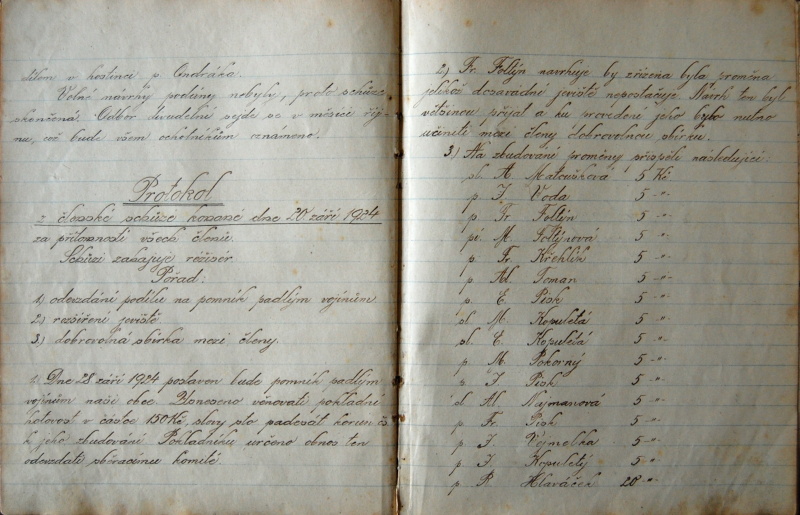 dílem v hostinci p. Ondráka.
Volné návrhy podány nebyly, proto schůze
skončena. Odbor divadelní sejde se v měsíci říj-
nu, což bude všem ochotníkům oznámeno.
Protokol
z členské schůze konané dne 20. září 1924
za přítomnosti všech členů.
Schůzi zahajuje režisér
Pořad:
1.) odevzdání podílu na pomník padlým vojínům
2.) rozšíření jeviště
3.) dobrovolná sbírka mezi členy.
1.) Dne 28 září 1924 postaven bude pomník padlým
vojínům naší obce. Usneseno věnovati pokladní
hotovost v částce 150 Kč slovy sto padesát korun čs
k jeho zbudování. Pokladníku určeno obnos ten
odevzdati sběracímu komité
2.) Fr. Foltýn navrhuje by zřízena byla proměna
jelikož dosavádní jeviště nepostačuje. Návrh ten byl
většinou přijat a ku provedení jeho bylo nutno
učiniti mezi členy dobrovolnou sbírku.
3.) Na zbudování proměny přispěli následující:
sl. A. Matoušková 5 Kč
p. J. Voda 5 -"-
p. Fr. Foltýn 5 -"-
pí. M. Foltýnová 5 -"-
p. Fr. Křehlík 5 -"-
p. Al. Toman 5 -"-
p. E. Pisk 5 -"-
sl. M. Kopuletá 5 -"-
sl. E. Kopuletá 5 -"-
p. A. Pokorný 5 -"-
p. J. Pisk 5 -"-
sl. Al. Najmanová 5 -"-
p. Fr. Pisk 5 -"-
p. J. Vojmelka 5 -"-
p. J. Kopuletý 5 -"-
p. R. Hlaváček 20 -"-